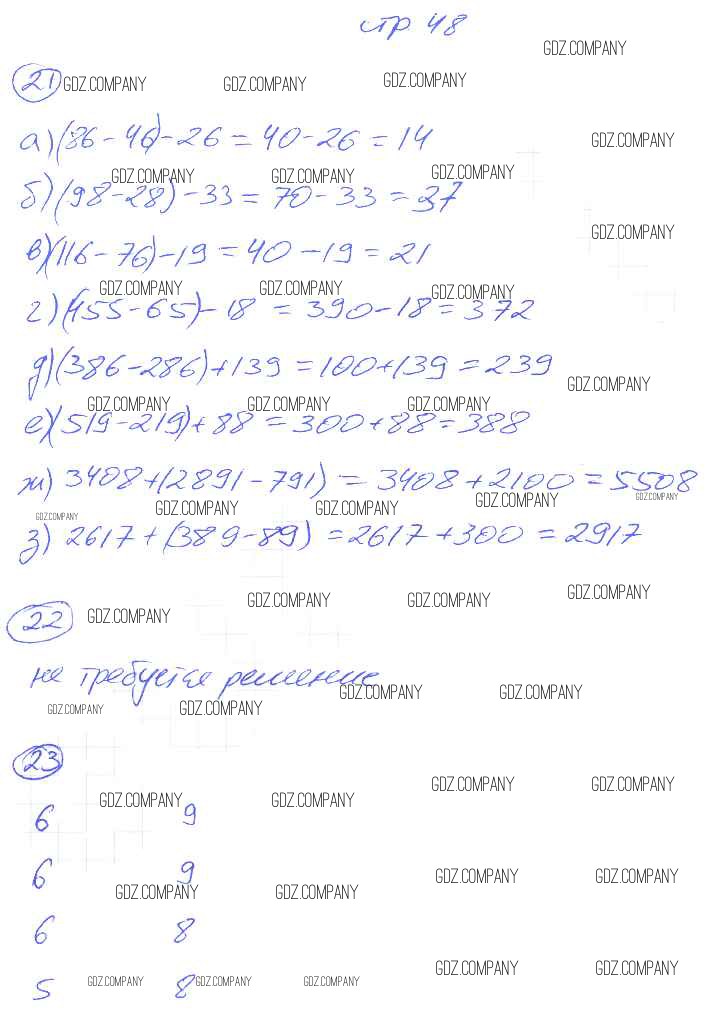 стр 48
GDZ.COMPANY
21 GDZ.COMPANY GDZ.COMPANY GDZ.COMPANY
а) (86 - 46) - 26 = 40 - 26 = 14 GDZ.COMPANY
GDZ.COMPANY GDZ.COMPANY GDZ.COMPANY
б) (98 - 28) - 33 = 70 - 33 = 37
GDZ.COMPANY
в) (116 - 76) - 19 = 40 - 19 = 21
GDZ.COMPANY GDZ.COMPANY GDZ.COMPANY
г) (455 - 65) - 18 = 390 - 18 = 372
д) (386 - 286) + 139 = 100 + 139 = 239
GDZ.COMPANY
GDZ.COMPANY GDZ.COMPANY GDZ.COMPANY
е) (519 - 219) + 88 = 300 + 88 = 388
ж) 3408 + (2891 - 791) = 3408 + 2100 = 5508
GDZ.COMPANY GDZ.COMPANY GDZ.COMPANY GDZ.COMPANY
GDZ.COMPANY
з) 2617 + (389 - 89) = 2617 + 300 = 2917
GDZ.COMPANY GDZ.COMPANY GDZ.COMPANY
22 GDZ.COMPANY
не требуется решение
GDZ.COMPANY GDZ.COMPANY
GDZ.COMPANY GDZ.COMPANY
23
GDZ.COMPANY GDZ.COMPANY
GDZ.COMPANY GDZ.COMPANY
6 9
6 9
GDZ.COMPANY GDZ.COMPANY
GDZ.COMPANY GDZ.COMPANY
6 8
GDZ.COMPANY GDZ.COMPANY
5 GDZ.COMPANY 8 GDZ.COMPANY GDZ.COMPANY